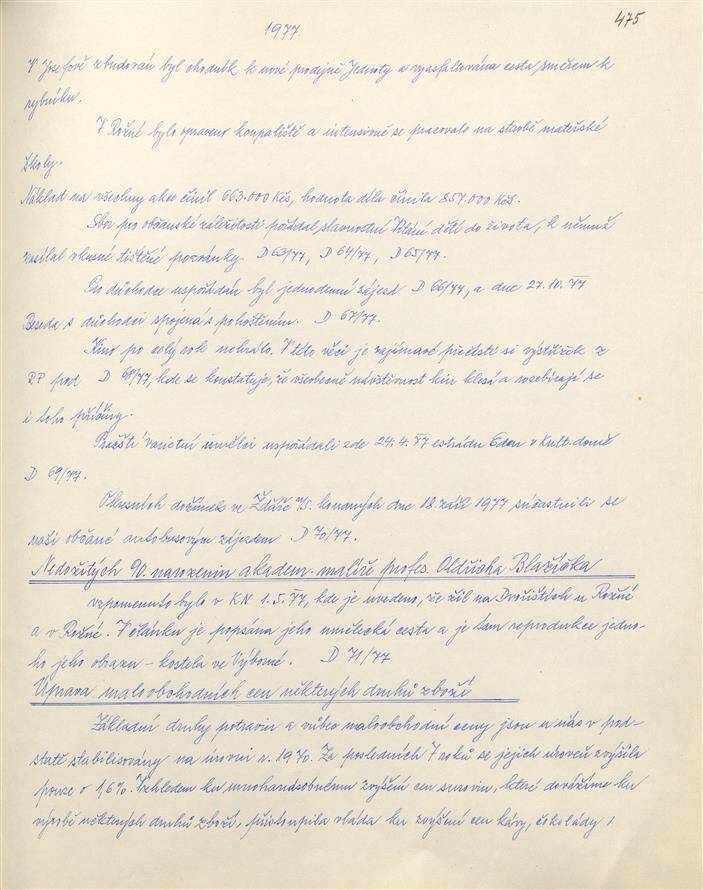 1977.
475
V Josefově zbudován byl chodník k nové prodejně Jednoty a vyasfaltována cesta směrem k
rybníku.
V Rožné bylo opraveno koupaliště a intensivně se pracovalo na stavbě mateřské
školy.
Náklad na všechny akce činil 663.000 Kčs, hodnota díla činila 857.000 Kčs.
Sbor pro občanské záležitosti pořádal slavnostní Vítání dětí do života, k němuž
zasílal vkusné tištěné pozvánky. D 63/77, D 64/77, D 65/77.
Pro důchodce uspořádán byl jednodenní zájezd D 66/77, a dne 27.10. 77
Beseda s důchodci spojená s pohoštěním. D 67/77.
Kino po celý rok nehrálo. V této věci je zajímavé přečísti si výstřižek z
RP pod D 68/77, kde se konstatuje, že všeobecně návštěvnost kin klesá a rozebírají se
i toho příčiny.
Pražští varietní umělci uspořádali zde 24.4.77 estrádu Eden v Kult. domě
D 69/77.
Okresních dožínek ve Žďáře n/S. konaných dne 18. září 1977 súčastnili se
naši občané autobusovým zájezdem D 70/77.
Nedožitých 90. narozenin akadem. malíře profes. Oldřicha Blažíčka
vzpomenuto bylo v KN 1.5.77, kde je uvedeno, že žil na Dvořištích u Rožné
a v Rožné. V článku je popsána jeho umělecká cesta a je tam reprodukce jedno-
ho jeho obrazu – kostela ve Výborné. D 71/77
Úprava maloobchodních cen některých druhů zboží
Základní druhy potravin a vůbec maloobchodní ceny jsou u nás v pod-
statě stabilisovány na úrovni r. 1970. Za posledních 7 roků se jejich úroveň zvýšila
pouze o 1,6%. Vzhledem ku mnohanásobnému zvýšení cen surovin, které dovážíme ku
výrobě některých druhů zboží, přistoupila vláda ku zvýšení cen kávy, čokolády,